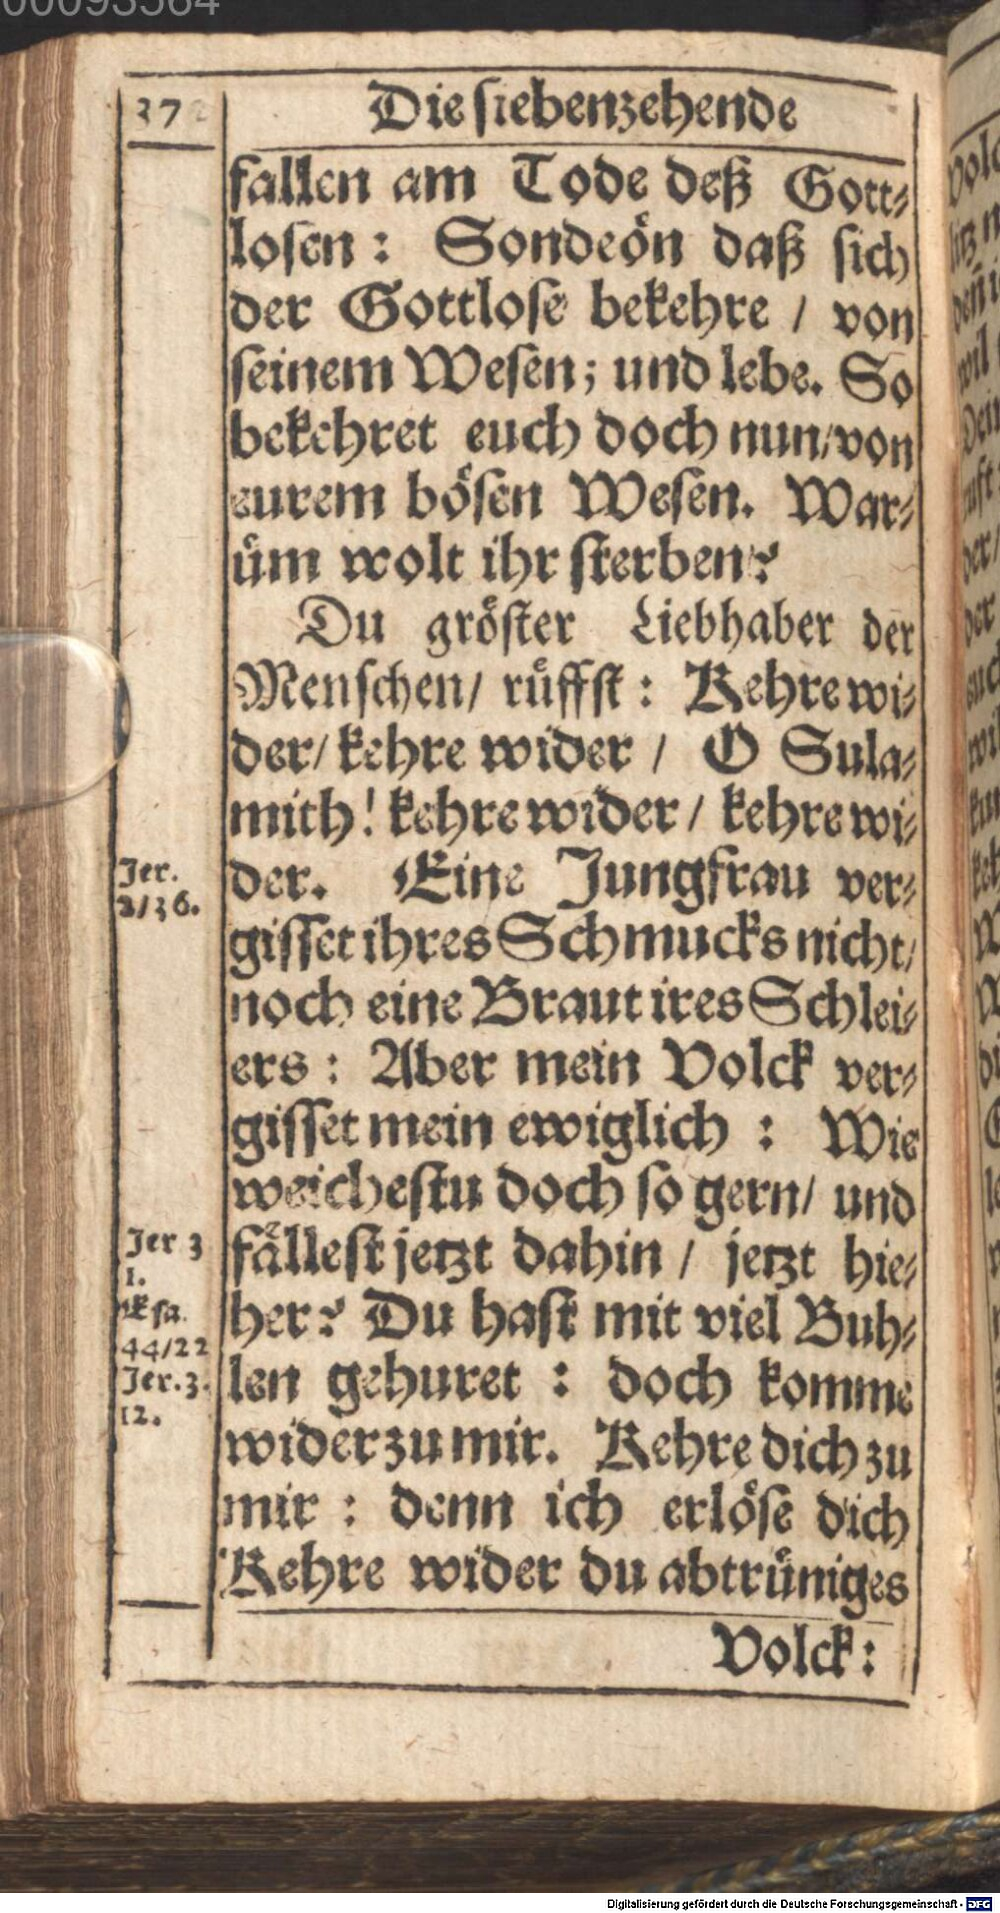 00093564
372
Die siebenzehende
fallen am Tode deß Gott-
losen: Sondeön daß sich
der Gottlose bekehre / von
seinem Wesen; und lebe. So
bekehret euch doch nun/von
eurem bösen Wesen. War-
üm wolt ihr sterben?
Du gröster Liebhaber der
Menschen/ rüffst: Kehre wi-
der/ kehre wider / O Sula-
mith! kehre wider / kehre wi-
der. Eine Jungfrau ver-
gisset ihres Schmucks nicht/
noch eine Braut ires Schlei-
ers: Aber mein Volck ver-
gisset mein ewiglich: Wie
weichestu doch so gern/ und
fällest jetzt dahin / jetzt hie-
her? Du hast mit viel Buh-
len gehuret: doch komme
wider zu mir. Kehre dich zu
mir: denn ich erlöse dich
Kehre wider du abtrüniges
Volck:
Jer.
2/36.
Jer 3
1.
Esa.
44/22
Jer. 3.
12.
Digitalisierung gefördert durch die Deutsche Forschungsgemeinschaft - DFG